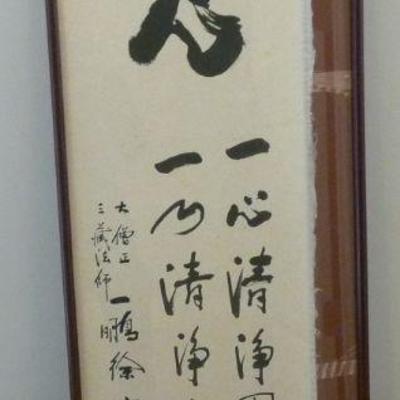 一心清淨
一 清淨
大僧正
三藏法師
一鵬徐